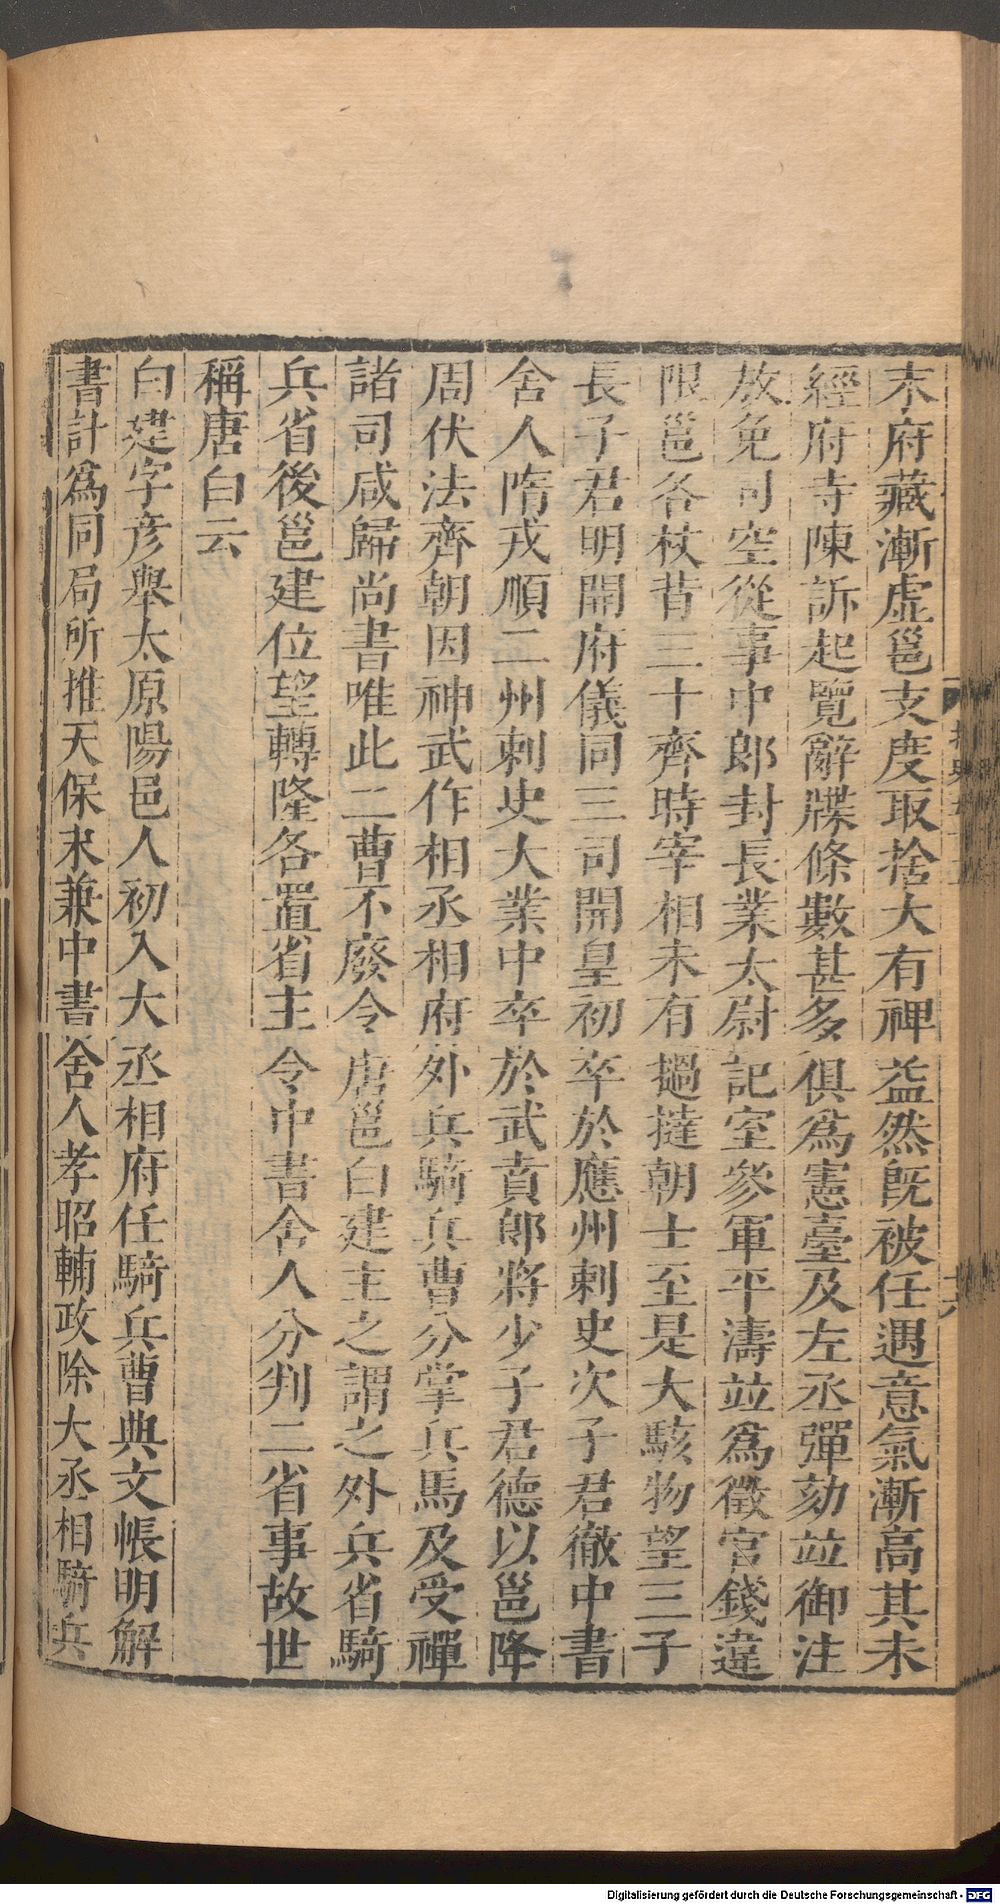 末府藏漸虛邕支度取捨大有裨益然既被任遇意氣漸高其未
經府寺陳訴起覽辭牒條數甚多俱爲憲臺及左丞彈劾竝御注
放免司空從事中郎封長業太尉記室參軍平濤竝爲徵官錢違
限邕各杖背三十齊時宰相未有撾撻朝士至是大駭物望三子
長子君明開府儀同三司開皇初卒於應州刺史次子君徹中書
舍人隋戎順二州刺史大業中卒於武賁郎將少子君德以邕降
周伏法齊朝因神武作相丞相府外兵騎兵曹分掌兵馬及受禪
諸司咸歸尚書唯此二曹不廢令唐邕白建主之謂之外兵省騎
兵省後邕建位望轉隆各置省主令中書舍人分判二省事故世
稱唐白云
白建字彥舉太原陽邑人初入大丞相府任騎兵曹典文帳明解
書計爲同局所推天保末兼中書舍人孝昭輔政除大丞相騎兵
十六
Digitalisierung gefördert durch die Deutsche Forschungsgemeinschaft - DFG